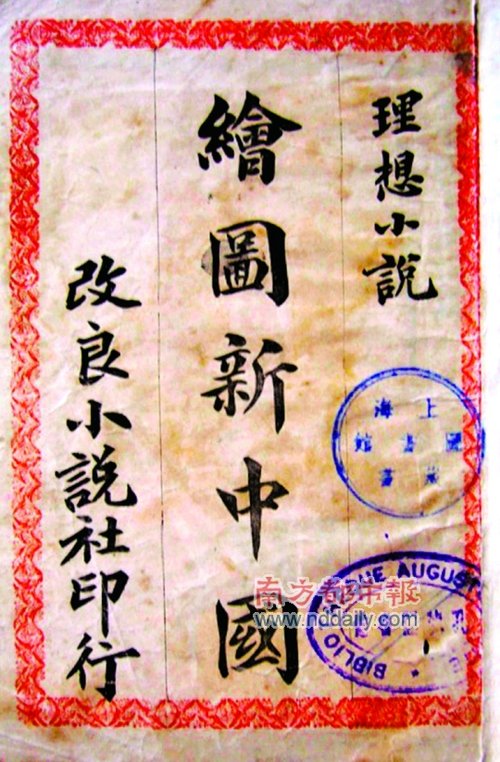 理想小說
繪圖新中國
改良小說社印行
上海
圖書館
藏書
BIBLIO
QUE AUGUST
南方都市報
www.nddaily.com